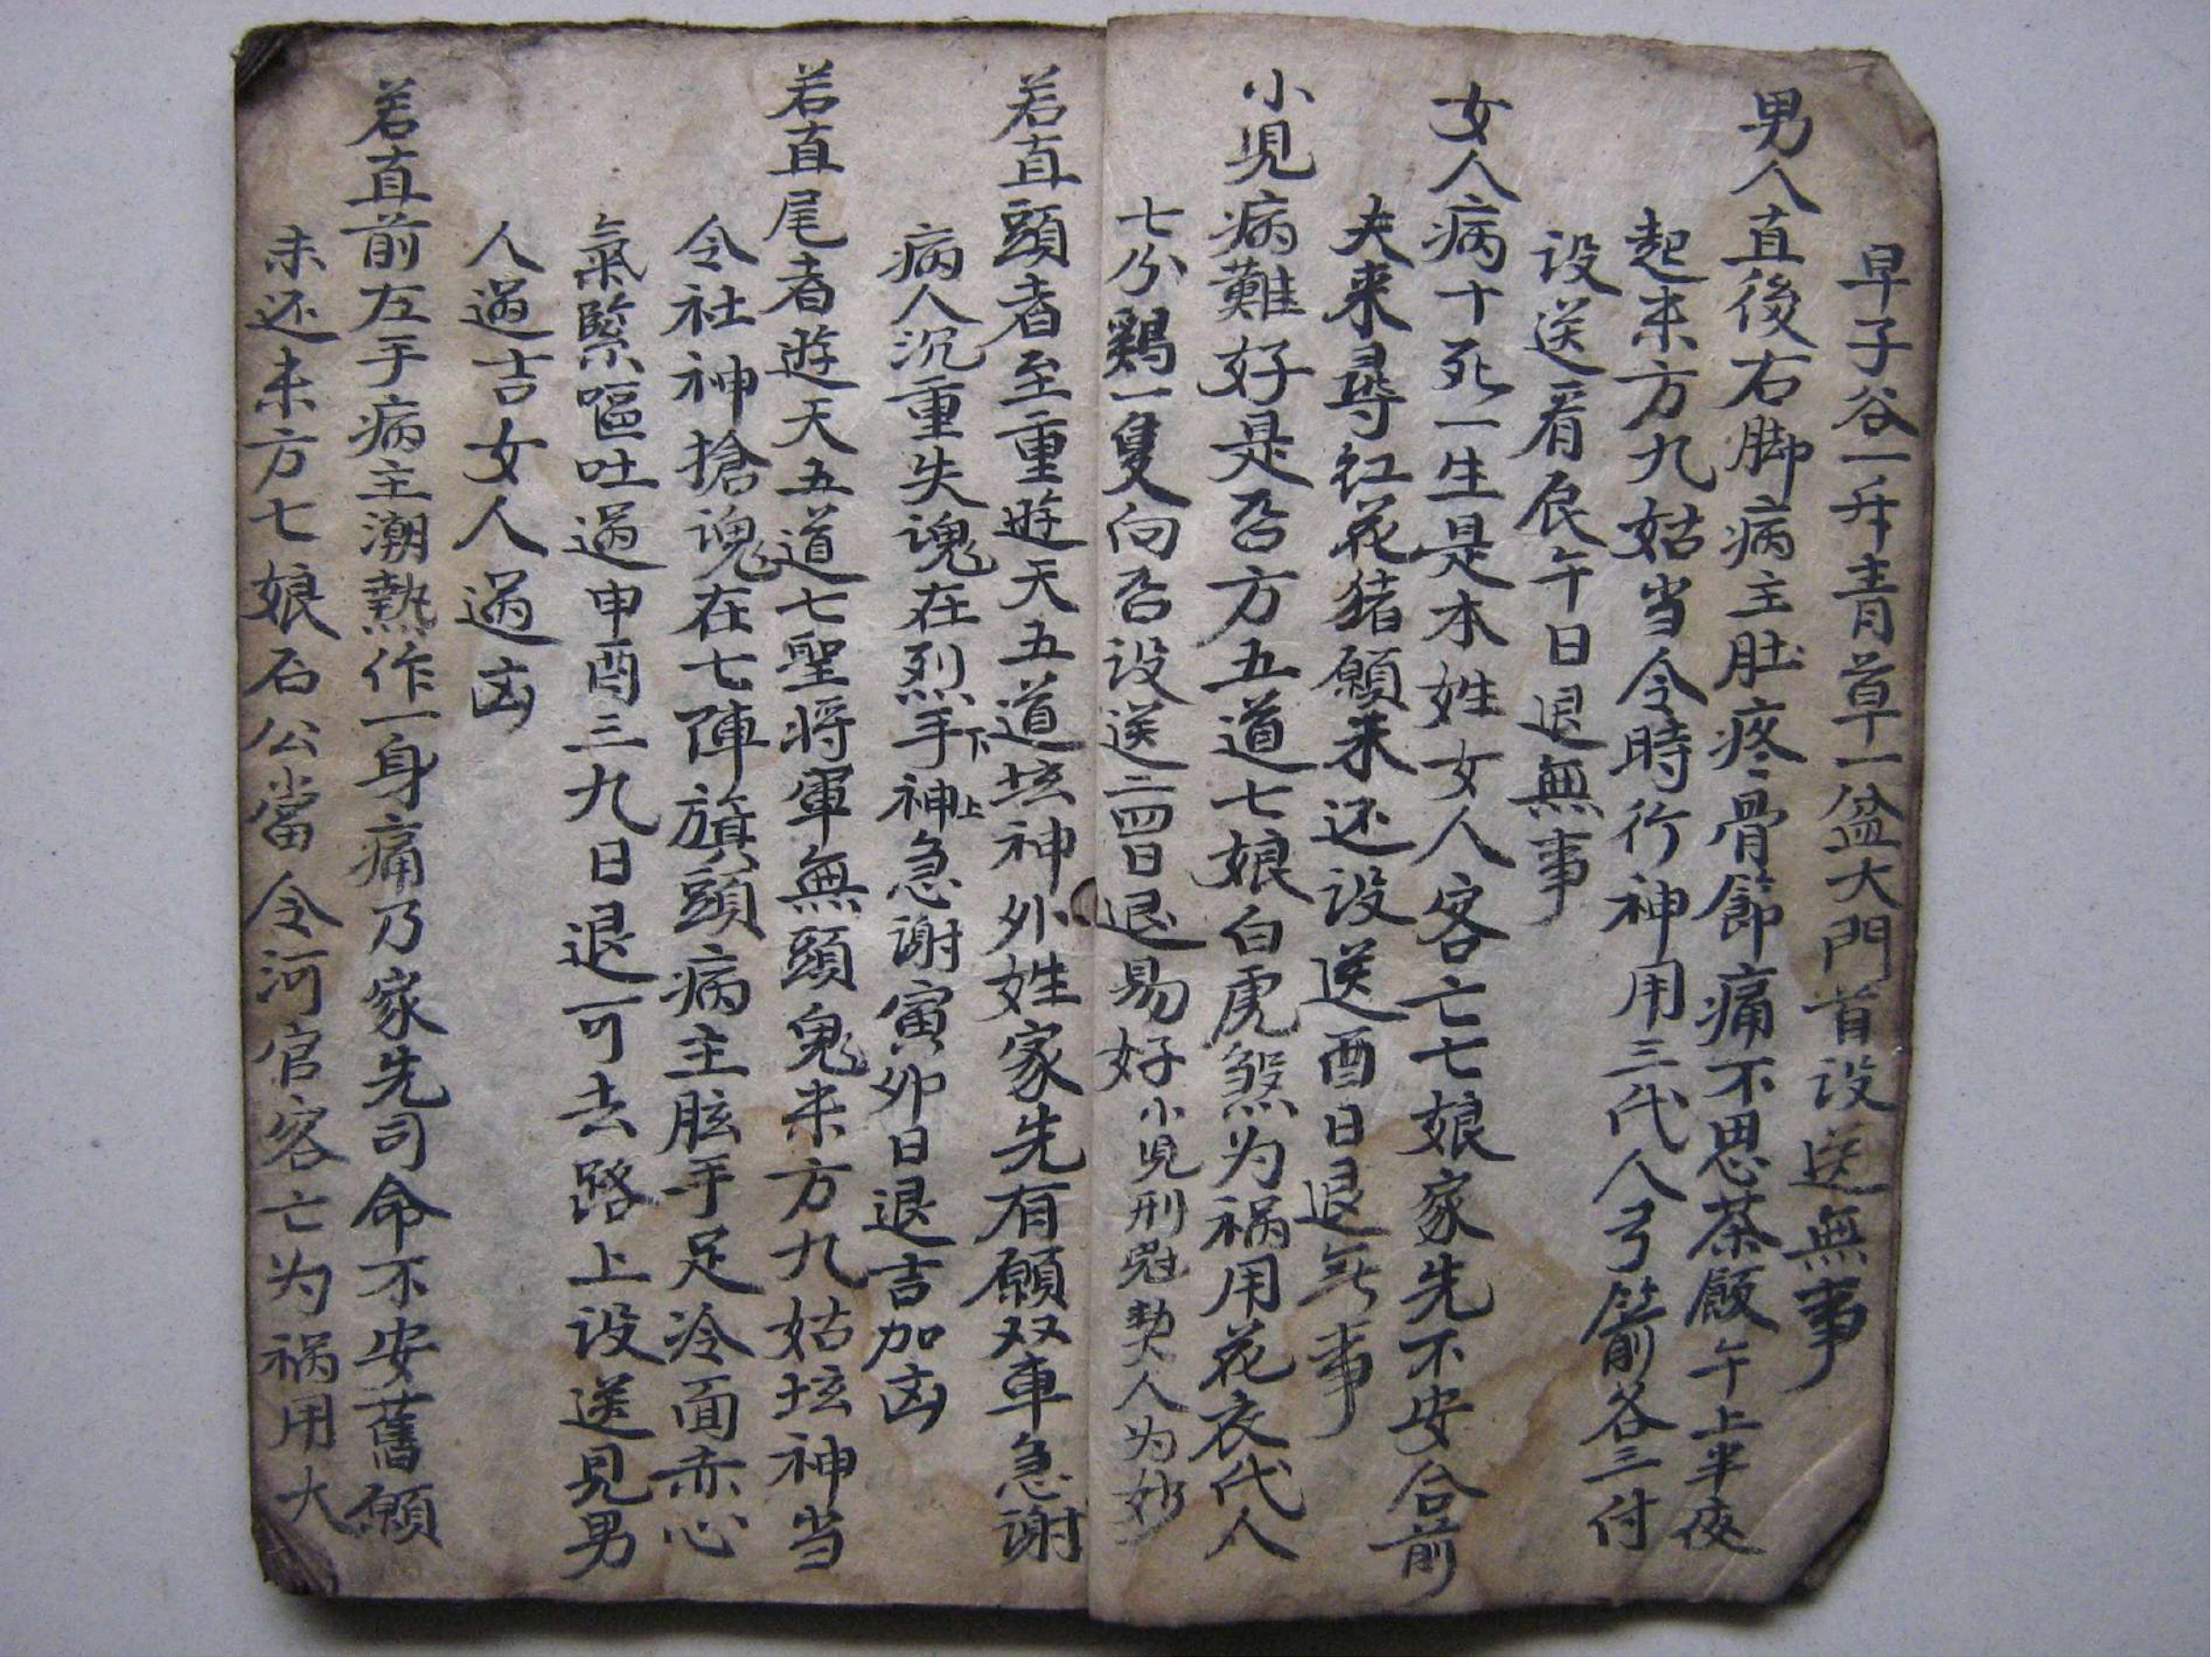 早子谷一升青草一盆大門首设送無事
男人直後右脚病主肚疼骨節痛不思茶飯午上半夜
起未方九姑当令時行神用三代人弓箭各三付
设送看辰午日退無事
女人病十死一生是本姓女人客亡七娘家先不安合前
夫来尋红花猪願未还设送酉日退无事
小児病難好是否方五道七娘白虎煞为祸用花衣代人
七分鷄一隻向否设送二四日退易好小児刑尅契人为妙
若直頭者至重遊天五道坛神外姓家先有願双車急谢
病人沉重失魂在烈手下神上急谢寅卯日退吉加凶
若直尾者遊天五道七聖将軍無頭鬼未方九姑坛神当
令社神搶魂在七陣旗頭病主眩手足冷面赤心
氣緊嘔吐過申酉三九日退可去路上设送見男
人過吉女人過凶
若直前左手病主潮熱作一身痛乃家先司命不安舊願
未还未方七娘石公當令河官客亡为祸用大